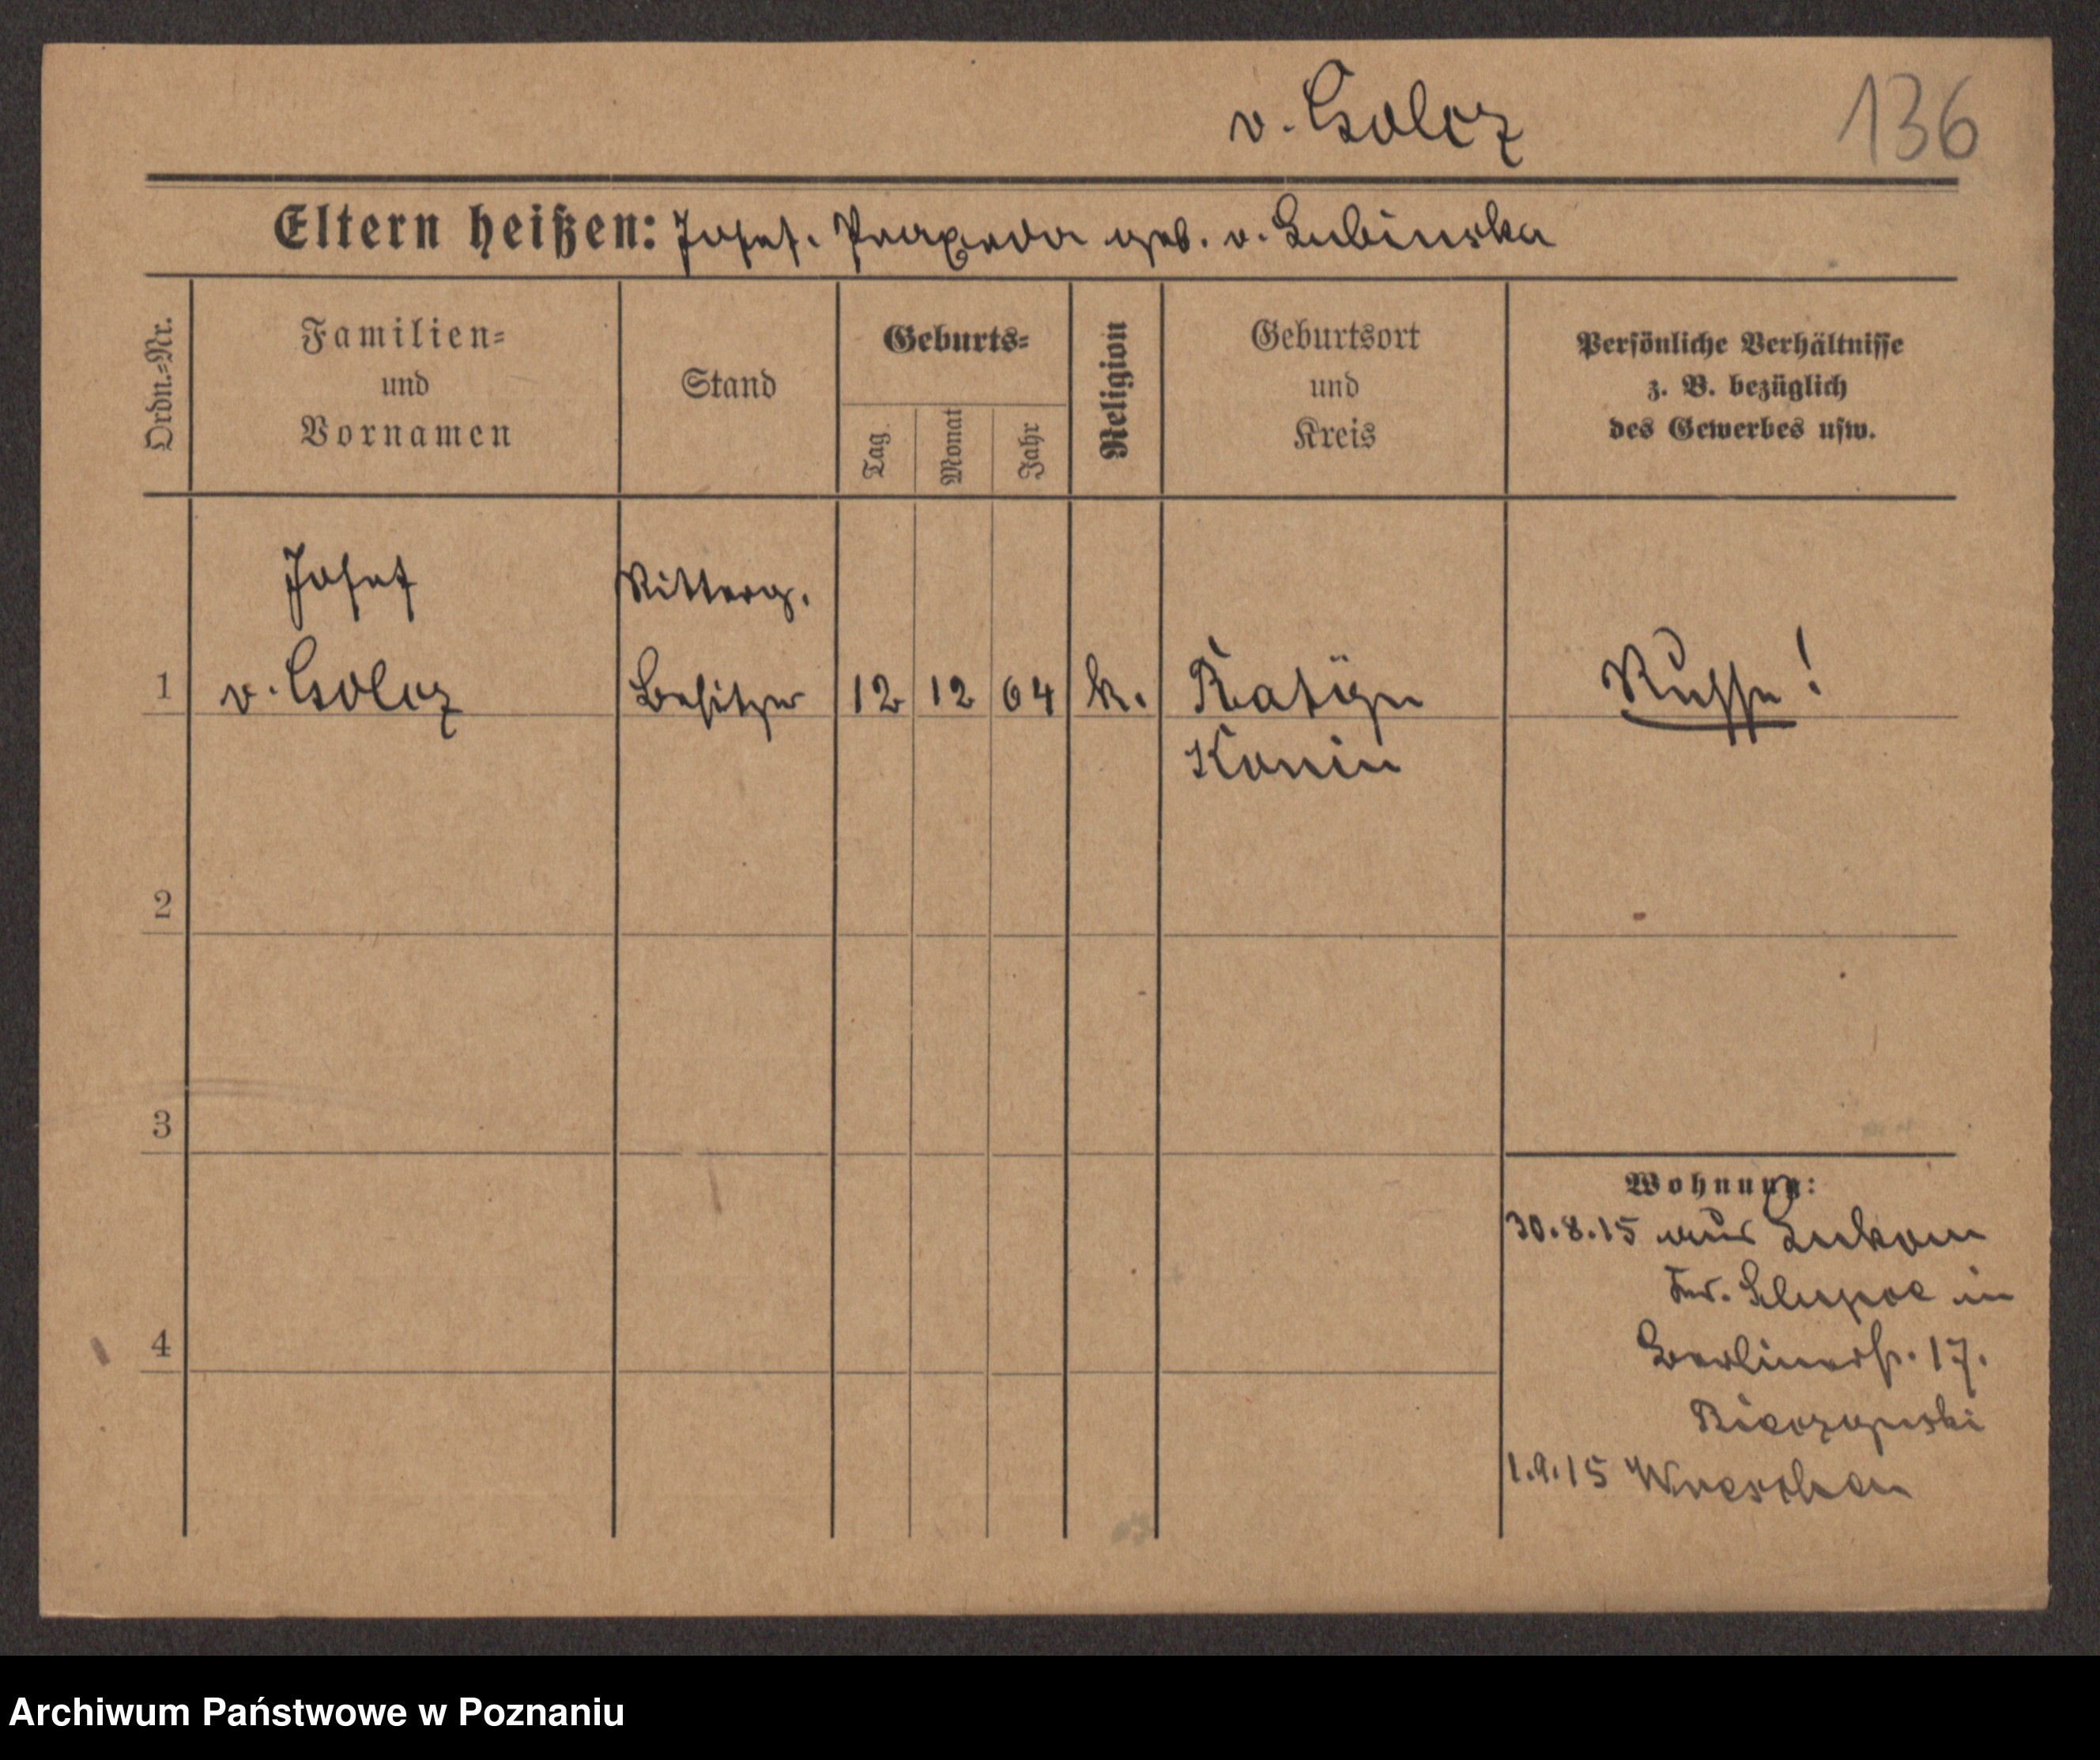 v. Golcz
136
Eltern heißen: Josef. Praxeda geb. v. Lubinska
Ordn.=Nr.
Familien=
und
Vornamen
Stand
Geburts=
Tag
Monat
Jahr
Religion
Geburtsort
und
Kreis
Persönliche Verhältnisse
z. B. bezüglich
des Gewerbes usw.
1
Josef
v. Golcz
Ritterg.
Besitzer
12
12
64
k.
Konin
Russe!
2
3
4
Wohnung:
30.8.15 aus
Kr. Slupca in
Berlinerstr. 17.
1.9.15 Wreschen
Archiwum Państwowe w Poznaniu